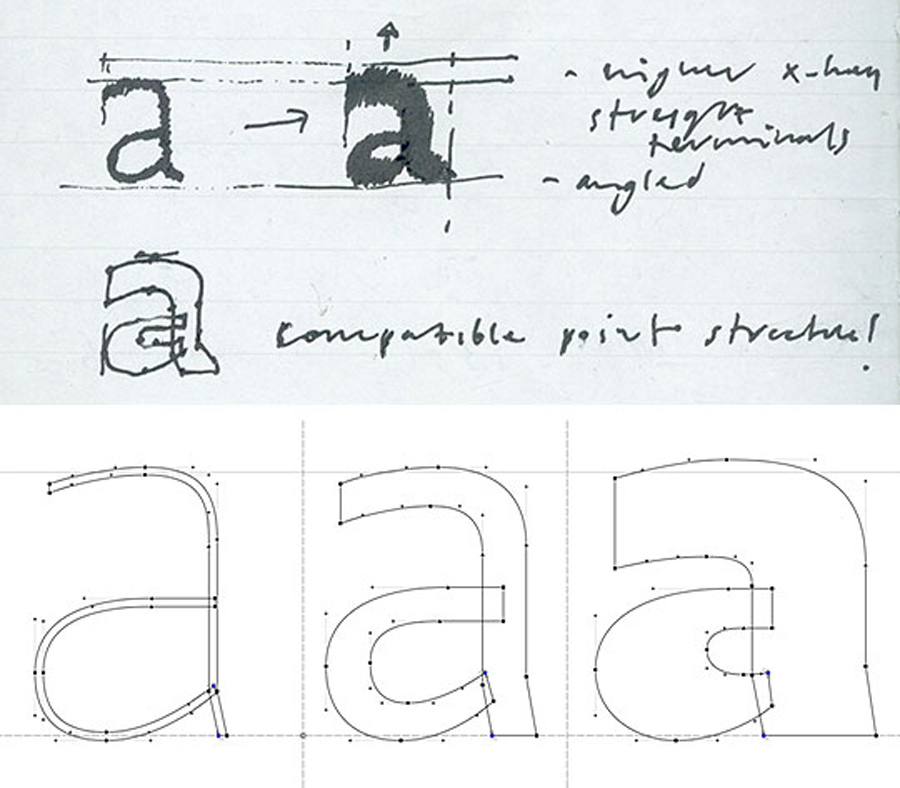 a → a
- higher x-hay
straight
terminals
- angled
a compatible point structure!
a a a